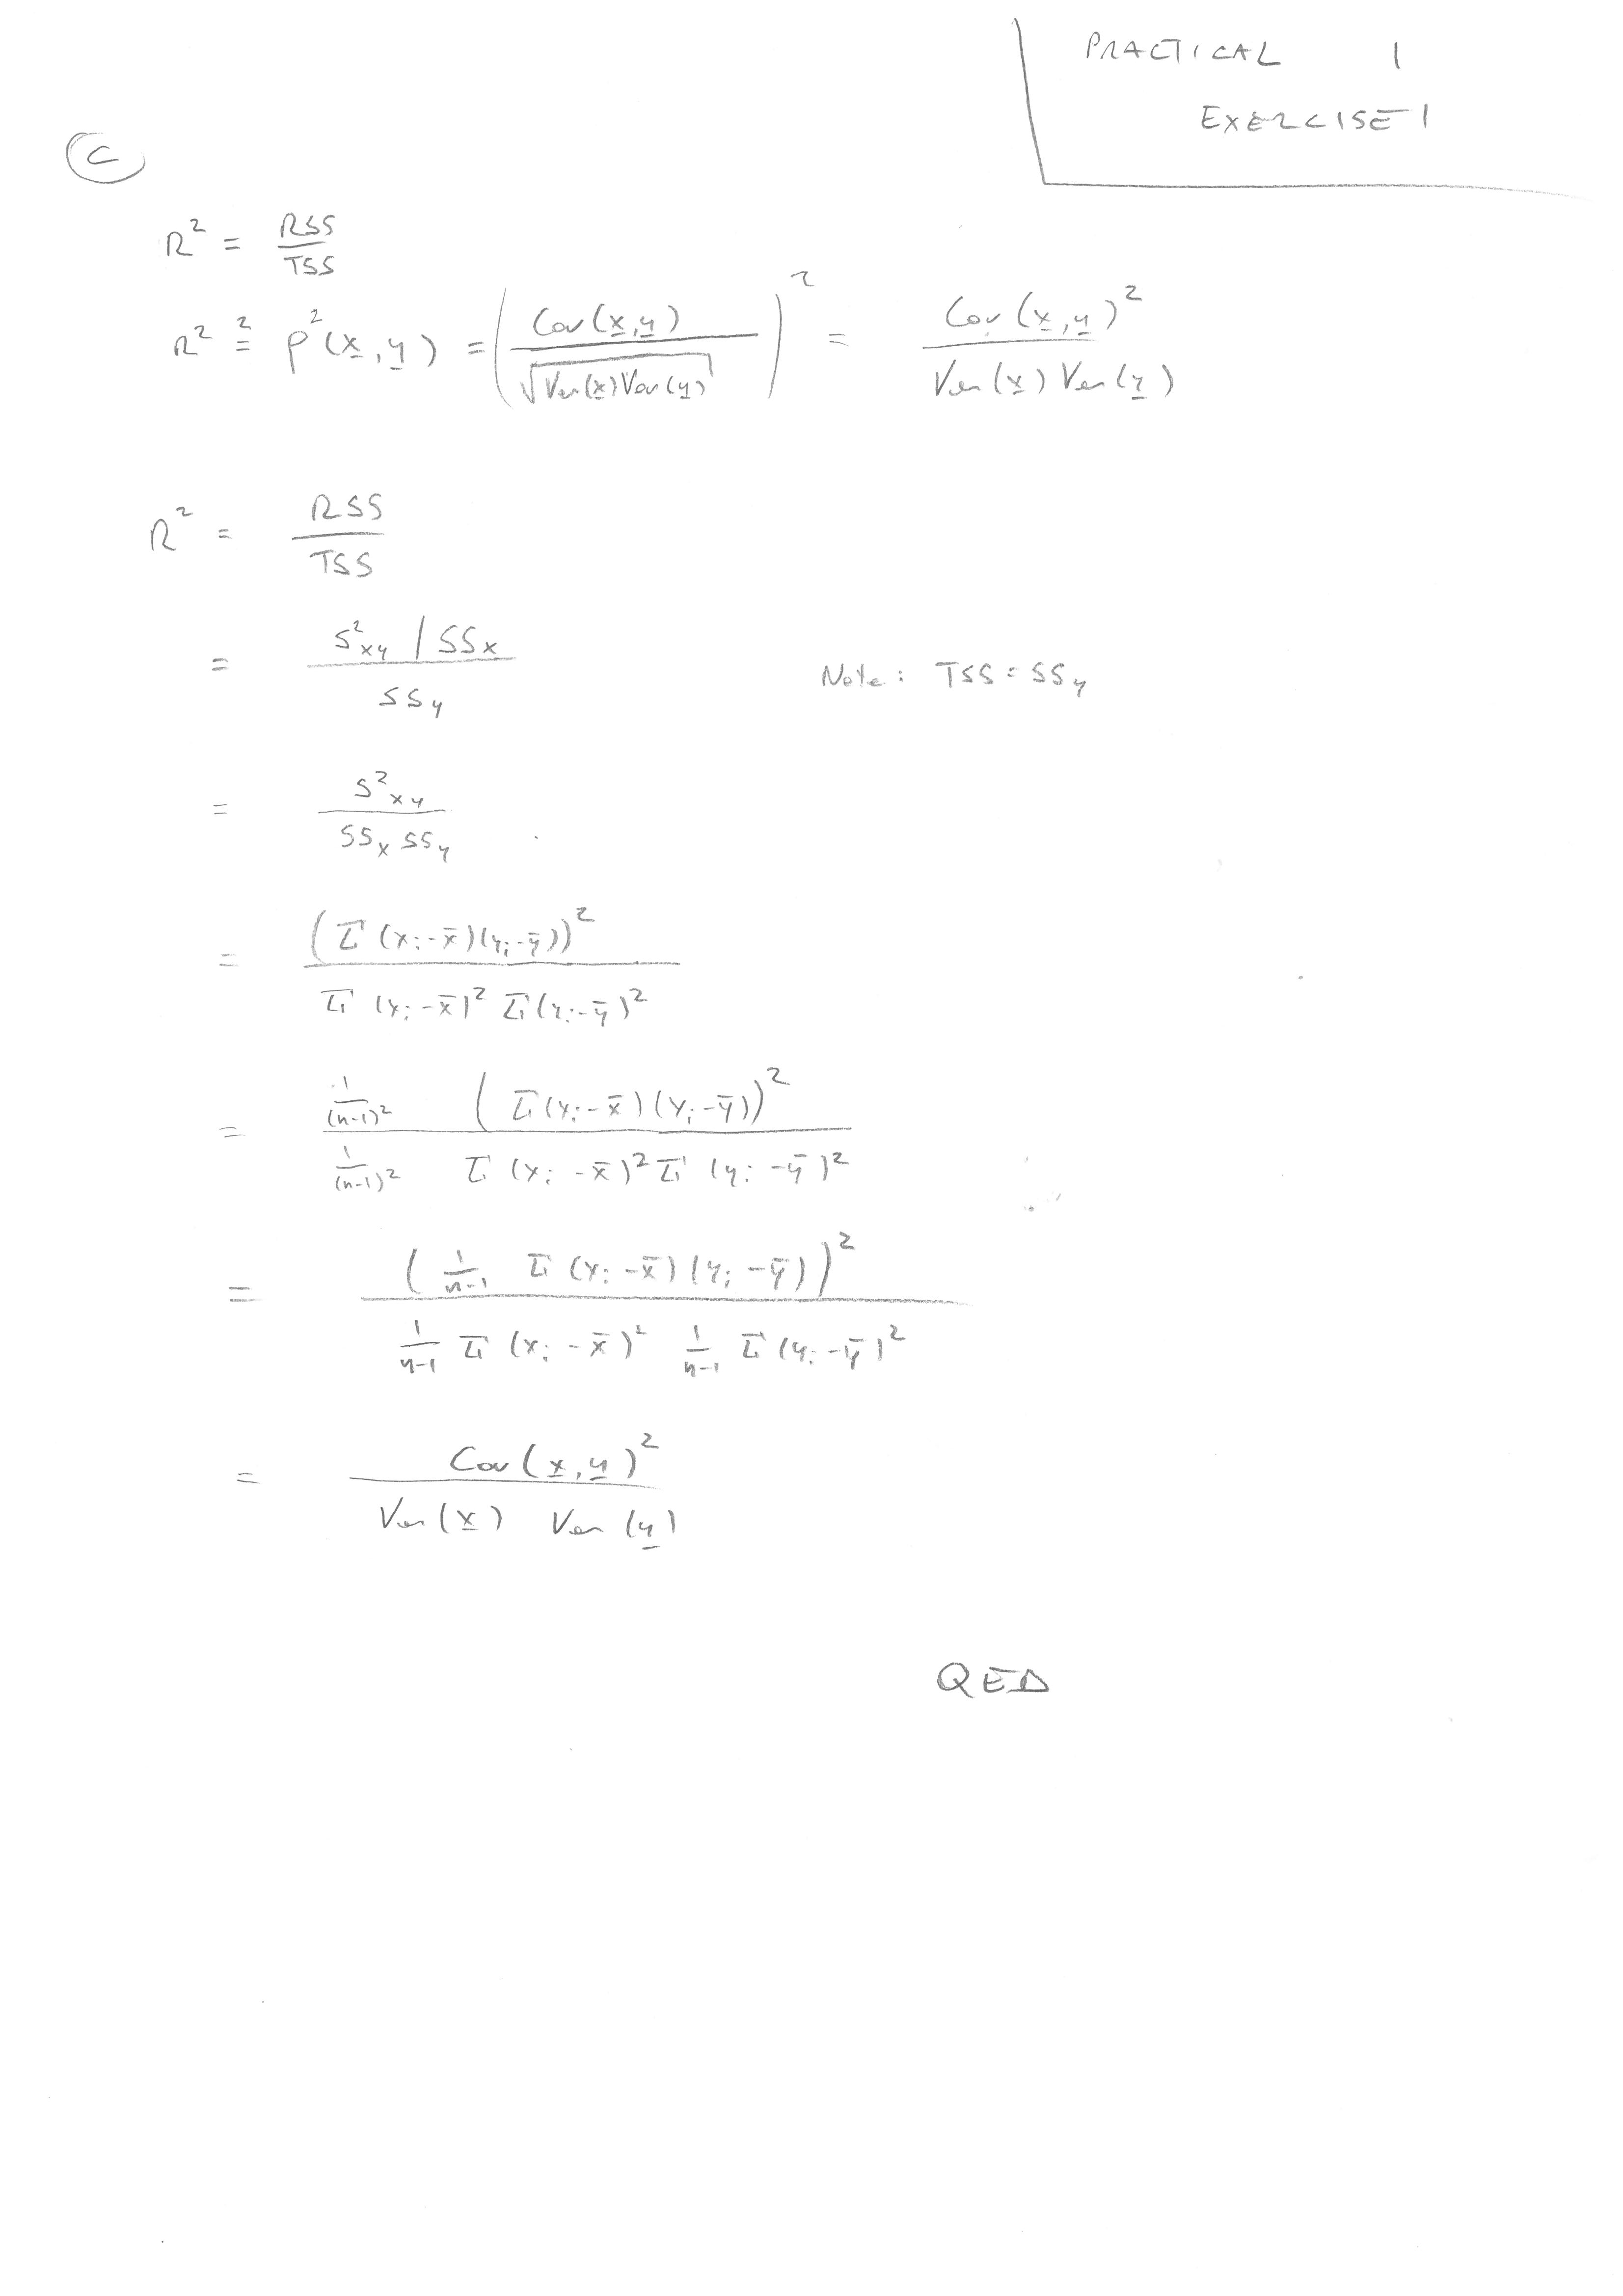 PRACTICAL 1
EXERCISE 1
(c)
R² = RSS / TSS
R² ≟ ρ²(x, y) = (Cov(x, y) / √Var(x) Var(y))² = Cov(x, y)² / Var(x) Var(y)
R² = RSS / TSS
= (S²xy / SSx) / SSy Note: TSS = SSy
= S²xy / SSx SSy
= (Σ(xi - x̄)(yi - ȳ))² / Σ(xi - x̄)² Σ(yi - ȳ)²
= 1/(n-1)² (Σ(xi - x̄)(yi - ȳ))² / 1/(n-1)² Σ(xi - x̄)² Σ(yi - ȳ)²
= (1/(n-1) Σ(xi - x̄)(yi - ȳ))² / 1/(n-1) Σ(xi - x̄)² 1/(n-1) Σ(yi - ȳ)²
= Cov(x, y)² / Var(x) Var(y)
QED